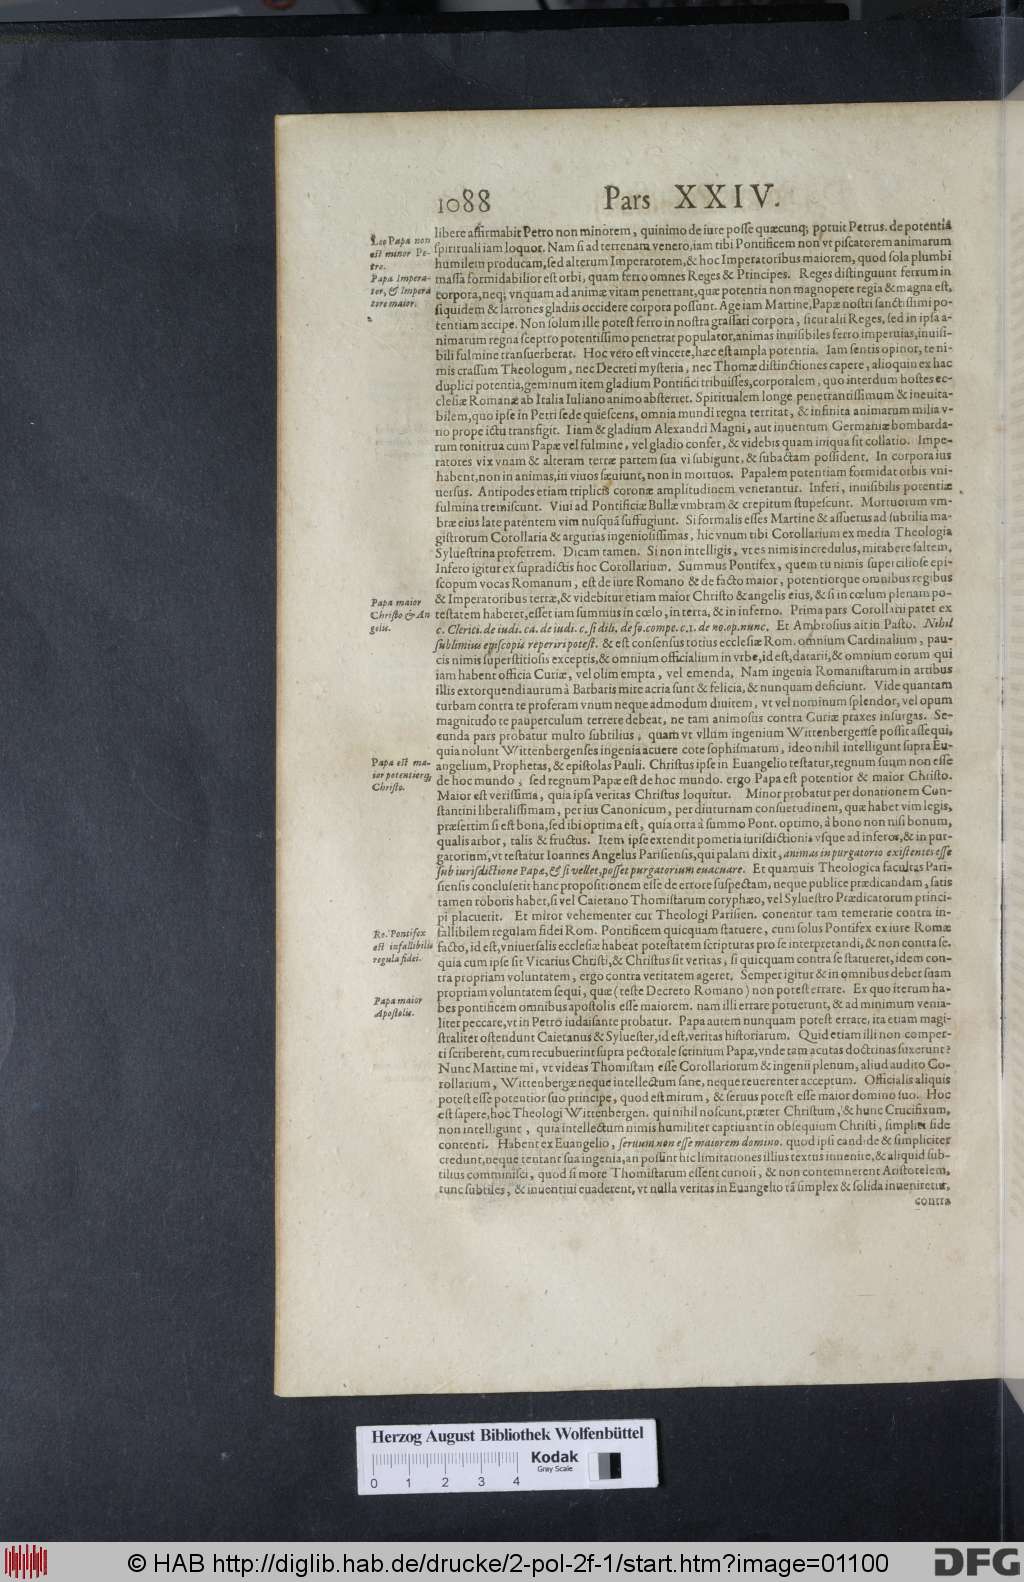 1088
Pars XXIV.
Leo Papa non
est minor Pe-
tro.
Papa Impera-
tor, & Impera
tore maior.
libere affirmabit Petro non minorem, quinimo de iure posse quæcunq; potuit Petrus. de potentia
spirituali iam loquor. Nam si ad terrenam venero, iam tibi Pontificem non vt piscatorem animarum
humilem producam, sed alterum Imperatorem, & hoc Imperatoribus maiorem, quod sola plumbi
massa formidabilior est orbi, quam ferro omnes Reges & Principes. Reges distinguunt ferrum in
corpora, neq; vnquam ad animæ vitam penetrant, quæ potentia non magnopere regia & magna est,
siquidem & latrones gladiis occidere corpora possunt. Age iam Martine, Papæ nostri sanctissimi po-
tentiam accipe. Non solum ille potest ferro in nostra grassari corpora, sicut alii Reges, sed in ipsa a-
nimarum regna sceptro potentissimo penetrat populator, animas inuisibiles ferro imperuias, inuisi-
bili fulmine transuerberat. Hoc vero est vincere, hæc est ampla potentia. Iam sentis opinor, te ni-
mis crassum Theologum, nec Decreti mysteria, nec Thomæ distinctiones capere, alioquin ex hac
duplici potentia, geminum item gladium Pontifici tribuisses, corporalem, quo interdum hostes ec-
clesiæ Romanæ ab Italia Iuliano animo absterret. Spiritualem longe penetrantissimum & ineuita-
bilem, quo ipse in Petri sede quiescens, omnia mundi regna territat, & infinita animarum milia v-
no prope ictu transfigit. I iam & gladium Alexandri Magni, aut inuentum Germaniæ bombarda-
rum tonitrua cum Papæ vel fulmine, vel gladio confer, & videbis quam iniqua sit collatio. Impe-
ratores vix vnam & alteram terræ partem sua vi subigunt, & subactam possident. In corpora ius
habent, non in animas, in viuos sæuiunt, non in mortuos. Papalem potentiam formidat orbis vni-
uersus. Antipodes etiam triplicis coronæ amplitudinem venerantur. Inferi, inuisibilis potentiæ
fulmina tremiscunt. Viui ad Pontificiæ Bullæ vmbram & crepitum stupescunt. Mortuorum vm-
bræ eius late patentem vim nusquã suffugiunt. Si formalis esses Martine & assuetus ad subtilia ma-
gistrorum Corollaria & argutias ingeniosissimas, hic vnum tibi Corollarium ex media Theologia
Syluestrina proferrem. Dicam tamen. Si non intelligis, vt es nimis incredulus, mirabere saltem,
Infero igitur ex supradictis hoc Corollarium. Summus Pontifex, quem tu nimis superciliose epi-
scopum vocas Romanum, est de iure Romano & de facto maior, potentiorque omnibus regibus
Papa maior
Christo & An
gelis.
& Imperatoribus terræ, & videbitur etiam maior Christo & angelis eius, & si in cœlum plenam po-
testatem haberet, esset iam summus in cœlo, in terra, & in inferno. Prima pars Corollarii patet ex
c. Clerici. de iudi. ca. de iudi. c. si dili. de fo. compe. c. 1. de no. op. nunc. Et Ambrosius ait in Pasto. Nihil
sublimius episcopis reperiri potest. & est consensus totius ecclesiæ Rom. omnium Cardinalium, pau-
cis nimis superstitiosis exceptis, & omnium officialium in vrbe, id est, datarii, & omnium eorum qui
iam habent officia Curiæ, vel olim empta, vel emenda, Nam ingenia Romanistarum in artibus
illis extorquendi aurum à Barbaris mire acria sunt & felicia, & nunquam deficiunt. Vide quantam
turbam contra te proferam vnum neque admodum diuitem, vt vel nominum splendor, vel opum
magnitudo te pauperculum terrere debeat, ne tam animosus contra Curiæ praxes insurgas. Se-
cunda pars probatur multo subtilius, quam vt vllum ingenium Wittenbergense possit assequi,
quia nolunt Wittenbergenses ingenia acuere cote sophismatum, ideo nihil intelligunt supra Eu-
Papa est ma-
ior potentiorq;
Christo.
angelium, Prophetas, & epistolas Pauli. Christus ipse in Euangelio testatur, regnum suum non esse
de hoc mundo, sed regnum Papæ est de hoc mundo. ergo Papa est potentior & maior Christo.
Maior est verissima, quia ipsa veritas Christus loquitur. Minor probatur per donationem Con-
stantini liberalissimam, per ius Canonicum, per diuturnam consuetudinem, quæ habet vim legis,
præsertim si est bona, sed ibi optima est, quia orta à summo Pont. optimo, à bono non nisi bonum,
qualis arbor, talis & fructus. Item ipse extendit pomeria iurisdictionis vsque ad inferos, & in pur-
gatorium, vt testatur Ioannes Angelus Parisiensis, qui palam dixit, animas in purgatorio existentes esse
sub iurisdictione Papæ, & si vellet, posset purgatorium euacuare. Et quamuis Theologica facultas Pari-
siensis concluserit hanc propositionem esse de errore suspectam, neque publice prædicandam, satis
tamen roboris habet, si vel Caietano Thomistarum coryphæo, vel Syluestro Prædicatorum princi-
pi placuerit. Et miror vehementer cur Theologi Parisien. conentur tam temerarie contra in-
Ro. Pontifex
est infallibilis
regula fidei.
fallibilem regulam fidei Rom. Pontificem quicquam statuere, cum solus Pontifex ex iure Romæ
facto, id est, vniuersalis ecclesiæ habeat potestatem scripturas pro se interpretandi, & non contra se.
quia cum ipse sit Vicarius Christi, & Christus sit veritas, si quicquam contra se statueret, idem con-
tra propriam voluntatem, ergo contra veritatem ageret. Semper igitur & in omnibus debet suam
propriam voluntatem sequi, quæ (teste Decreto Romano) non potest errare. Ex quo iterum ha-
Papa maior
Apostolis.
bes pontificem omnibus apostolis esse maiorem. nam illi errare potuerunt, & ad minimum venia-
liter peccare, vt in Petro iudaisante probatur. Papa autem nunquam potest errare, ita etiam magi-
straliter ostendunt Caietanus & Syluester, id est, veritas historiarum. Quid etiam illi non comper-
ti scriberent, cum recubuerint supra pectorale scrinium Papæ, vnde tam acutas doctrinas suxerunt?
Nunc Martine mi, vt videas Thomistam esse Corollariorum & ingenii plenum, aliud audito Co-
rollarium, Wittenbergæ neque intellectum sane, neque reuerenter acceptum. Officialis aliquis
potest esse potentior suo principe, quod est mirum, & seruus potest esse maior domino suo. Hoc
est sapere, hoc Theologi Wittenbergen. qui nihil noscunt, præter Christum, & hunc Crucifixum,
non intelligunt, quia intellectum nimis humiliter captiuant in obsequium Christi, simplici fide
contenti. Habent ex Euangelio, seruum non esse maiorem domino. quod ipsi candide & simpliciter
credunt, neque tentant sua ingenia, an possint hic limitationes illius textus inuenire, & aliquid sub-
tilius comminisci, quod si more Thomistarum essent curiosi, & non contemnerent Aristotelem,
tunc subtiles, & inuentiui euaderent, vt nulla veritas in Euangelio tã simplex & solida inueniretur,
contra
Herzog August Bibliothek Wolfenbüttel
Kodak
Gray Scale
0 1 2 3 4
© HAB http://diglib.hab.de/drucke/2-pol-2f-1/start.htm?image=01100
DFG